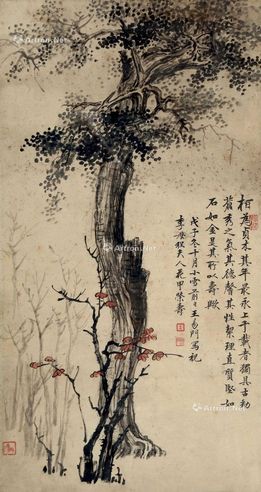 柏為貞木其年最永上千載者獨具古勁
蒼秀之氣其德馨其性絜理直質堅如
石如金是其所以壽歟
戊子冬十月小雪前一日王易門寫祝
季安程夫人花甲榮壽
Artron.Net
Artron.Net
Artron.Net
Artron.Net